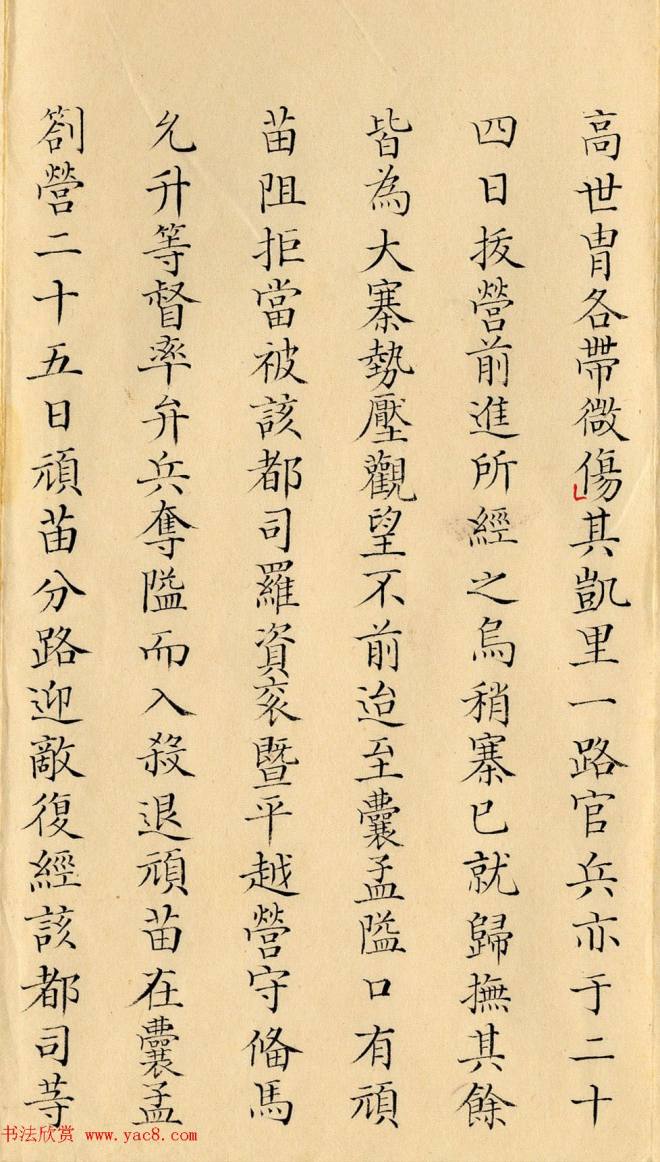 高世胄各帶微傷其凱里一路官兵亦于二十
四日拔營前進所經之烏稍寨已就歸撫其餘
皆為大寨勢壓觀望不前迨至囊孟隘口有頑
苗阻拒當被該都司羅資袞暨平越營守備馬
允升等督率弁兵奪隘而入殺退頑苗在囊孟
劄營二十五日頑苗分路迎敵復經該都司等
书法欣赏 www.yac8.com